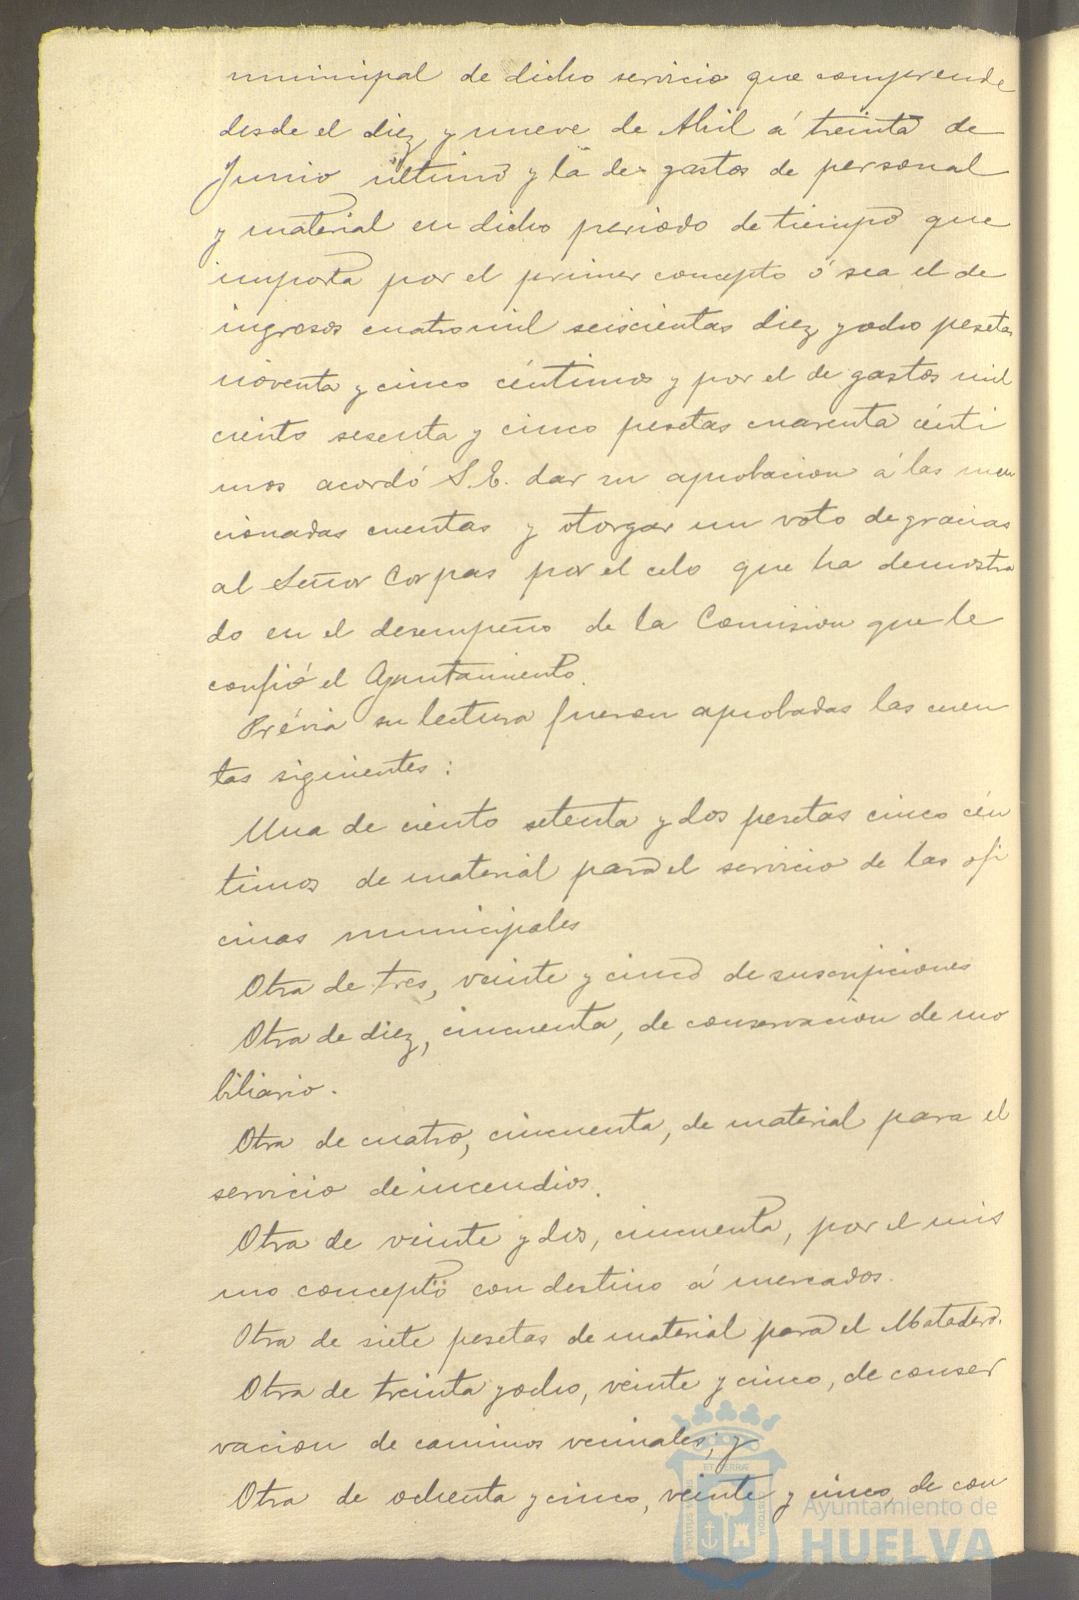 municipal de dicho servicio que comprende
desde el diez y nueve de Abril á treinta de
Junio último y la de gastos de personal
y material en dicho periodo de tiempo que
importa por el primer concepto ó sea el de
ingresos cuatro mil seiscientas diez y ocho pesetas
noventa y cinco céntimos y por el de gastos mil
ciento sesenta y cinco pesetas cuarenta cénti
mos acordó S.E. dar su aprobacion á las men
cionadas cuentas y otorgar un voto de gracias
al Señor Corpas por el celo que ha demostra
do en el desempeño de la Comision que le
confió el Ayuntamiento.
Prévia su lectura fueron aprobadas las cuen
tas siguientes:
Una de ciento setenta y dos pesetas cinco cén
timos de material para el servicio de las ofi
cinas municipales
Otra de tres, veinte y cinco de suscripciones
Otra de diez, cincuenta, de conservacion de mo
biliario.
Otra de cuatro, cincuenta, de material para el
servicio de incendios.
Otra de veinte y dos, cincuenta, por el mis
mo concepto con destino á mercados.
Otra de siete pesetas de material para el Matadero.
Otra de treinta y ocho, veinte y cinco, de conser
vacion de caminos vecinales; y
Otra de ochenta y cinco, veinte y cinco, de con
Ayuntamiento de
HUELVA